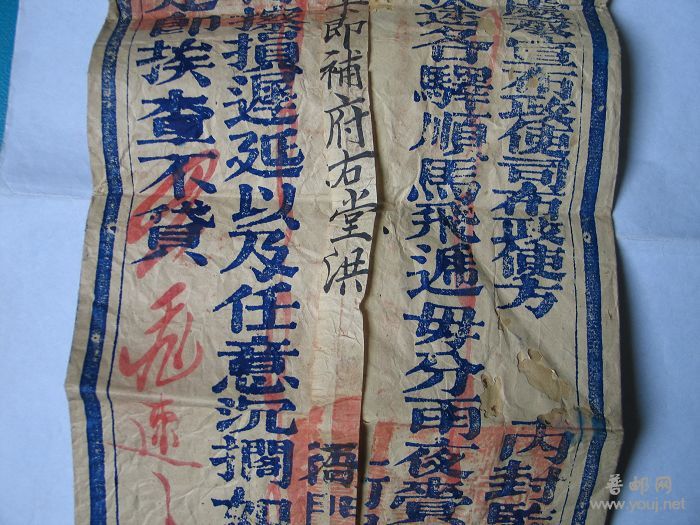 宣布政使司布政使方
內封
途各驛順馬飛遞毋分雨夜賫
即補府右堂洪
損遲延以及任意沉擱如
即挨查不貸
飛速
普邮网
www.youj.net